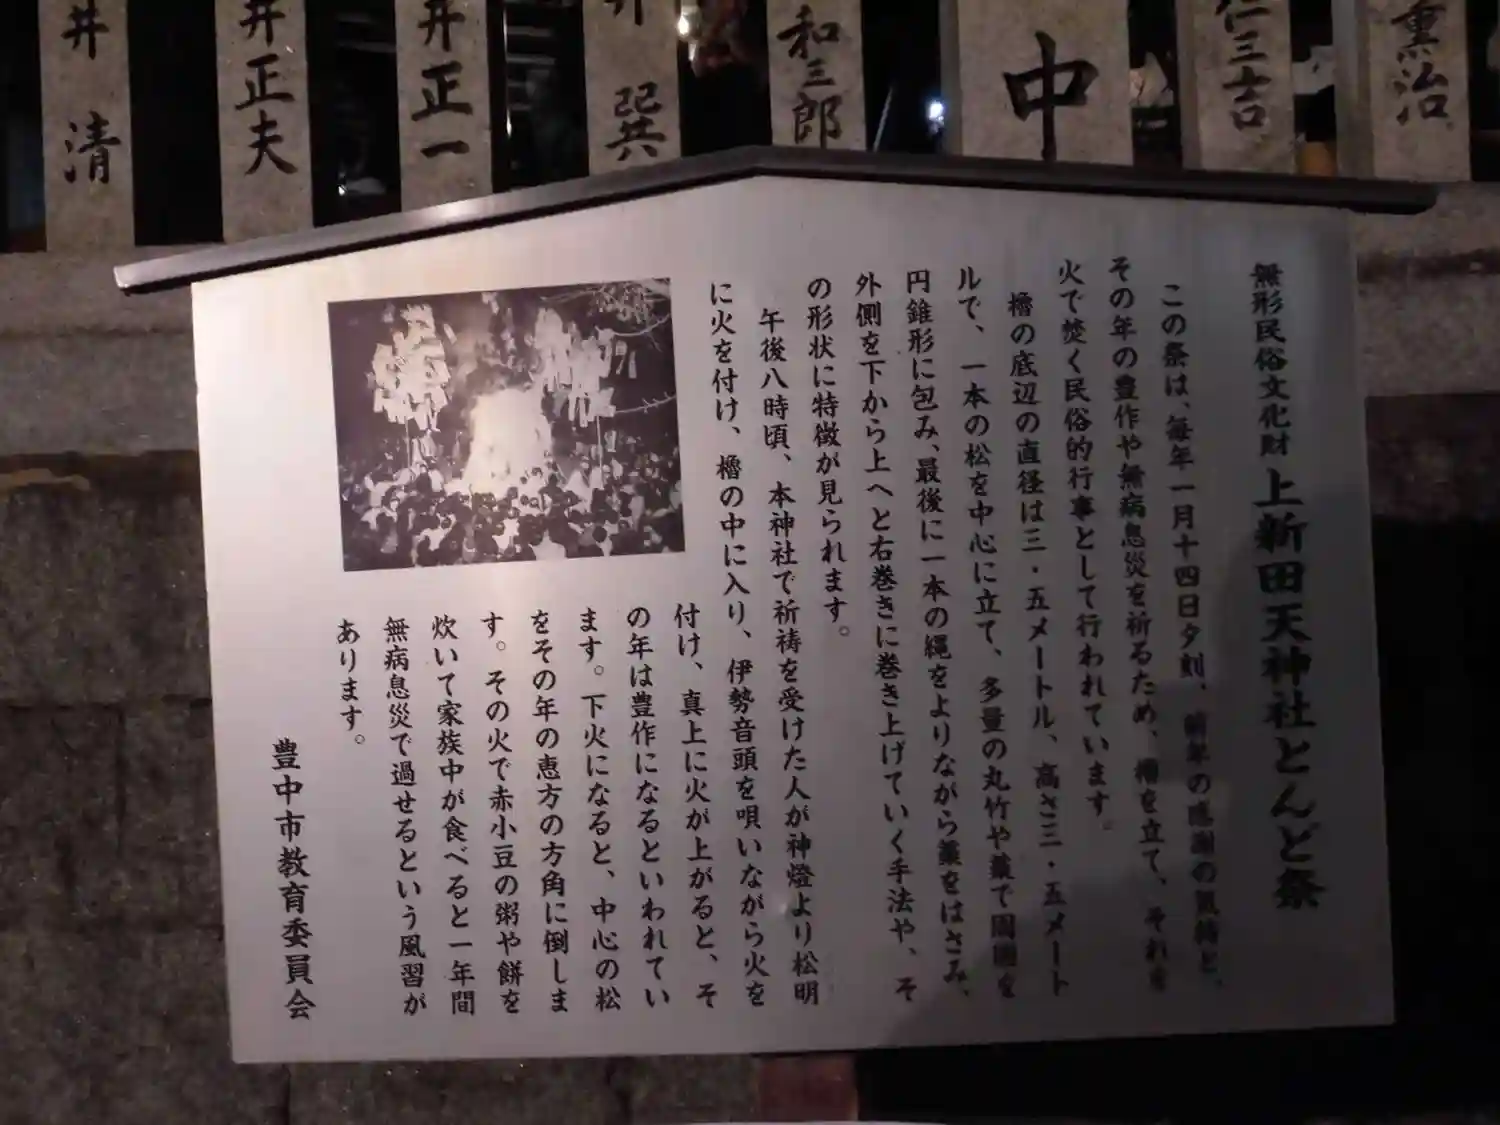 井清
井正夫
井正一
井巽
和三郎
中
仁三吉
薫治
無形民俗文化財 上新田天神社とんど祭
この祭は、毎年一月十四日夕刻、前年の感謝の気持と、
その年の豊作や無病息災を祈るため、櫓を立て、それを
火で焚く民俗的行事として行われています。
櫓の底辺の直径は三・五メートル、高さ三・五メート
ルで、一本の松を中心に立て、多量の丸竹や藁で周囲を
円錐形に包み、最後に一本の縄をよりながら藁をはさみ、
外側を下から上へと右巻きに巻き上げていく手法や、そ
の形状に特徴が見られます。
午後八時頃、本神社で祈祷を受けた人が神燈より松明
に火を付け、櫓の中に入り、伊勢音頭を唄いながら火を
付け、真上に火が上がると、そ
の年は豊作になるといわれてい
ます。下火になると、中心の松
をその年の恵方の方角に倒しま
す。その火で赤小豆の粥や餅を
炊いて家族中が食べると一年間
無病息災で過せるという風習が
あります。
豊中市教育委員会